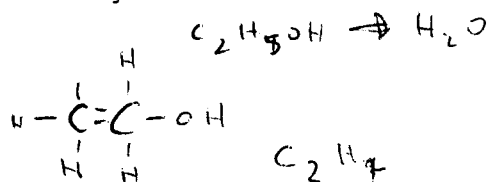 C₂H₅OH → H₂O
H
H — C = C — OH
H H
C₂H₄